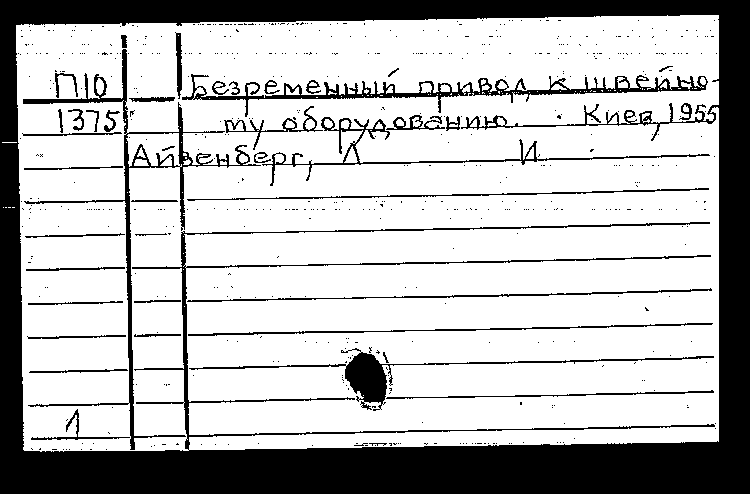 П10 Безременный привод к швейно-
1375 му оборудованию. Киев, 1955
Айзенберг, Л И
Л